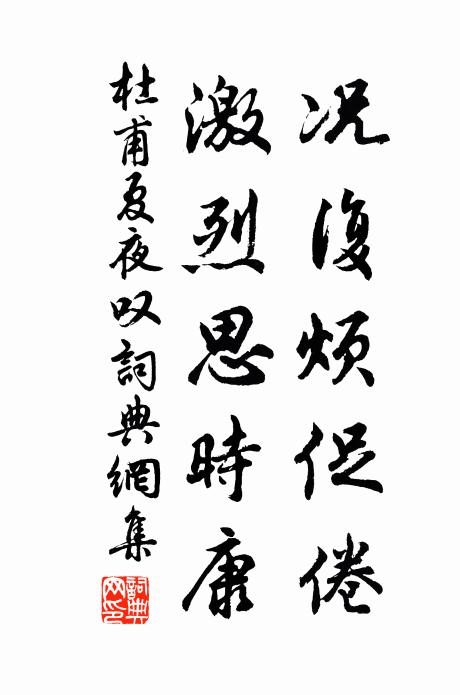 况復煩促倦
激烈思時康
杜甫夏夜叹詞典網集
詞典網印